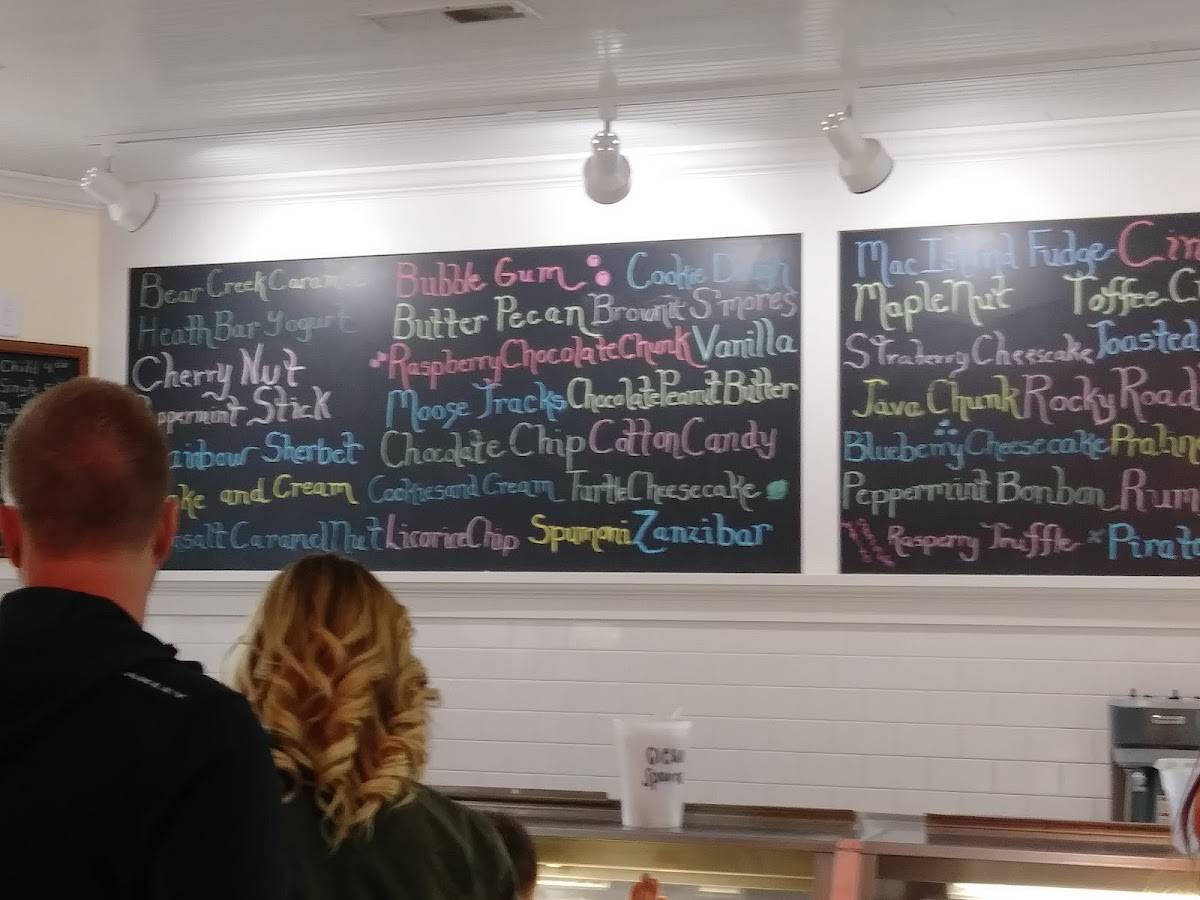 Bear Creek Caramel
Heath Bar Yogurt
Cherry Nut
Peppermint Stick
ainbow Sherbet
ake and Cream
salt Caramel Nut
Bubble Gum
Cookie Dough
Butter Pecan
Brownie S'mores
Raspberry Chocolate Chunk
Vanilla
Moose Tracks
Chocolate Peanut Butter
Chocolate Chip
Cotton Candy
Cookies and Cream
Turtle Cheesecake
Licorice Chip
Spumoni
Zanzibar
Mac Island Fudge
Cin
Maple Nut
Toffee C
Straberry Cheesecake
Toasted
Java Chunk
Rocky Road
Blueberry Cheesecake
Pralin
Peppermint Bonbon
Rum
Rasperry Truffle
Pirat